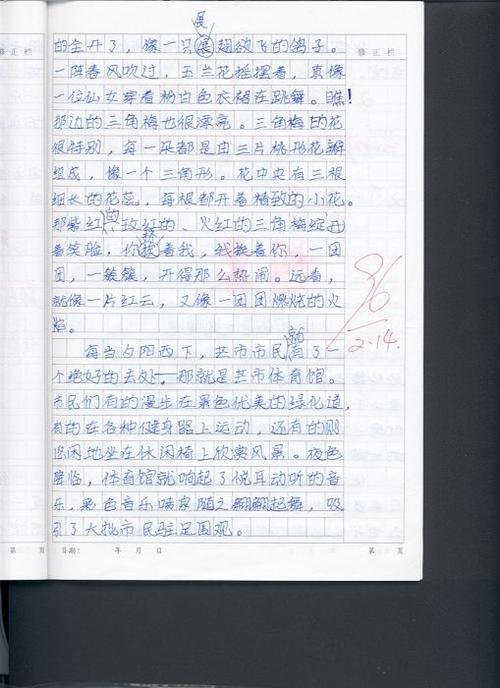 展
修正栏
修正栏
的全开了，像一只展翅欲飞的鸽子。
一阵春风吹过，玉兰花摇摆着，真像
一位仙女穿着粉白色衣裙在跳舞。瞧！
那边的三角梅也很漂亮。三角梅的花
很特别，每一朵都是由三片桃形花瓣
组成，像一个三角形。花中央有三根
细长的花蕊，每根都开着精致的小花。
那紫红的、玫红的、火红的三角梅绽开
着笑脸，你挨着我，我挨着你，一团
团，一簇簇，开得那么热闹。远看，
就像一片红云，又像一团团燃烧的火
焰。
96
2.14.
每当夕阳西下，芒市市民就有了一
个绝好的去处——那就是芒市体育馆。
市民们有的漫步在景色优美的绿化道，
有的在各种健身器上运动，还有的则
悠闲地坐在休闲椅上欣赏风景。夜色
降临，体育馆就响起了悦耳动听的音
乐，彩色音乐喷泉随之翩翩起舞，吸
引了大批市民驻足围观。
第 页
日期： 年 月 日
第 页